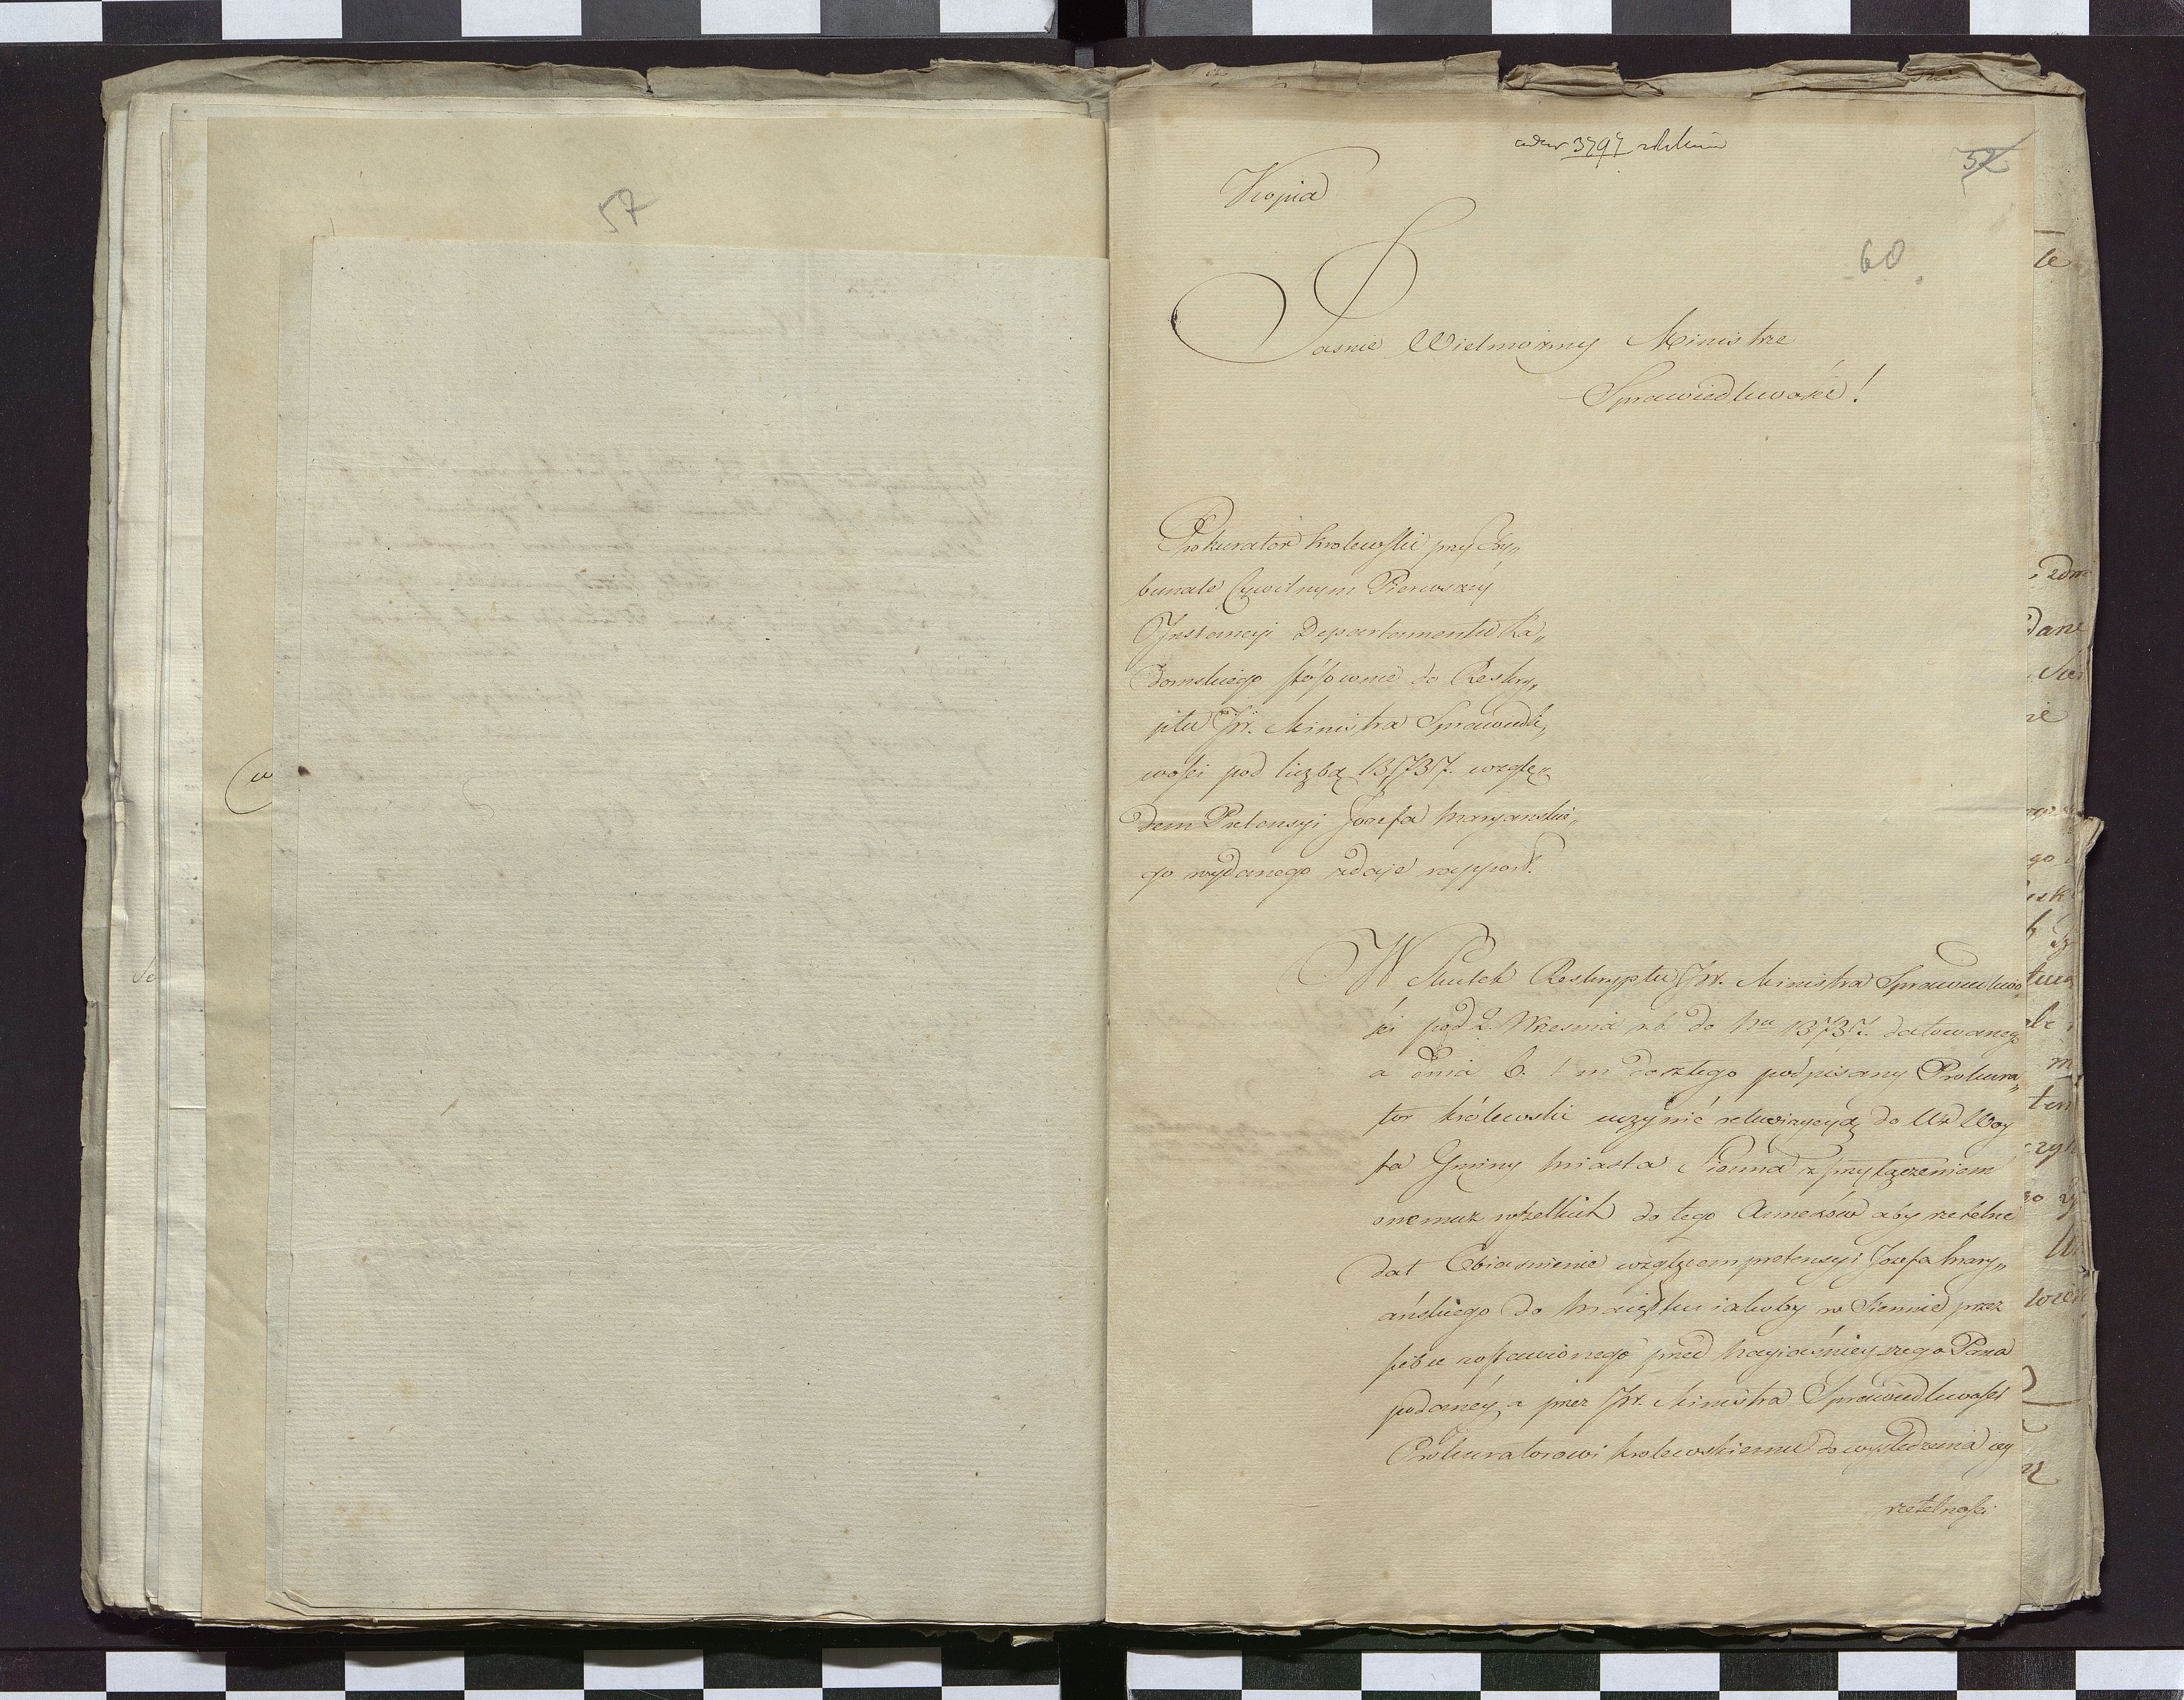 57
3797
52
60.
Kopia
Jasnie Wielmożny Ministrze
Sprawiedliwości!
Prokurator krolewski przy Try„
bunale Cywilnym Pierwszey
Instancyi Departamentu Ra„
domskiego stósownie do Reskry„
ptu JW. Ministra Sprawiedli„
wości pod liczbą 13,737. wzglę„
dem Pretensyi Jozefa Maryanskie„
go wydanego zdaie rapport.
W Skutek Reskryptu JW. Ministra Sprawiedliwo„
ści pod 2. Wrzesnia r.b. do Nru 13737. datowanego
a dnia 6. t m doszłego podpisany Prokura„
tor królewski uczynić rekwizycyą do Ur Woy
ta Gminy Miasta Sienna z przyłączeniem
onemuż wszelkich do tego Annexów aby rzetelne
dał Obiasnienie względem pretensyi Jozefa Mary„
ańskiego do Maiątku iakoby w Siennie przez
siebie zostawionego przed Nayiaśnieyszego Pana
podanéy a przez JW. Ministra Sprawiedliwości
Prokuratorowi krolewskiemu do wyśledzenia iey
rzetelności